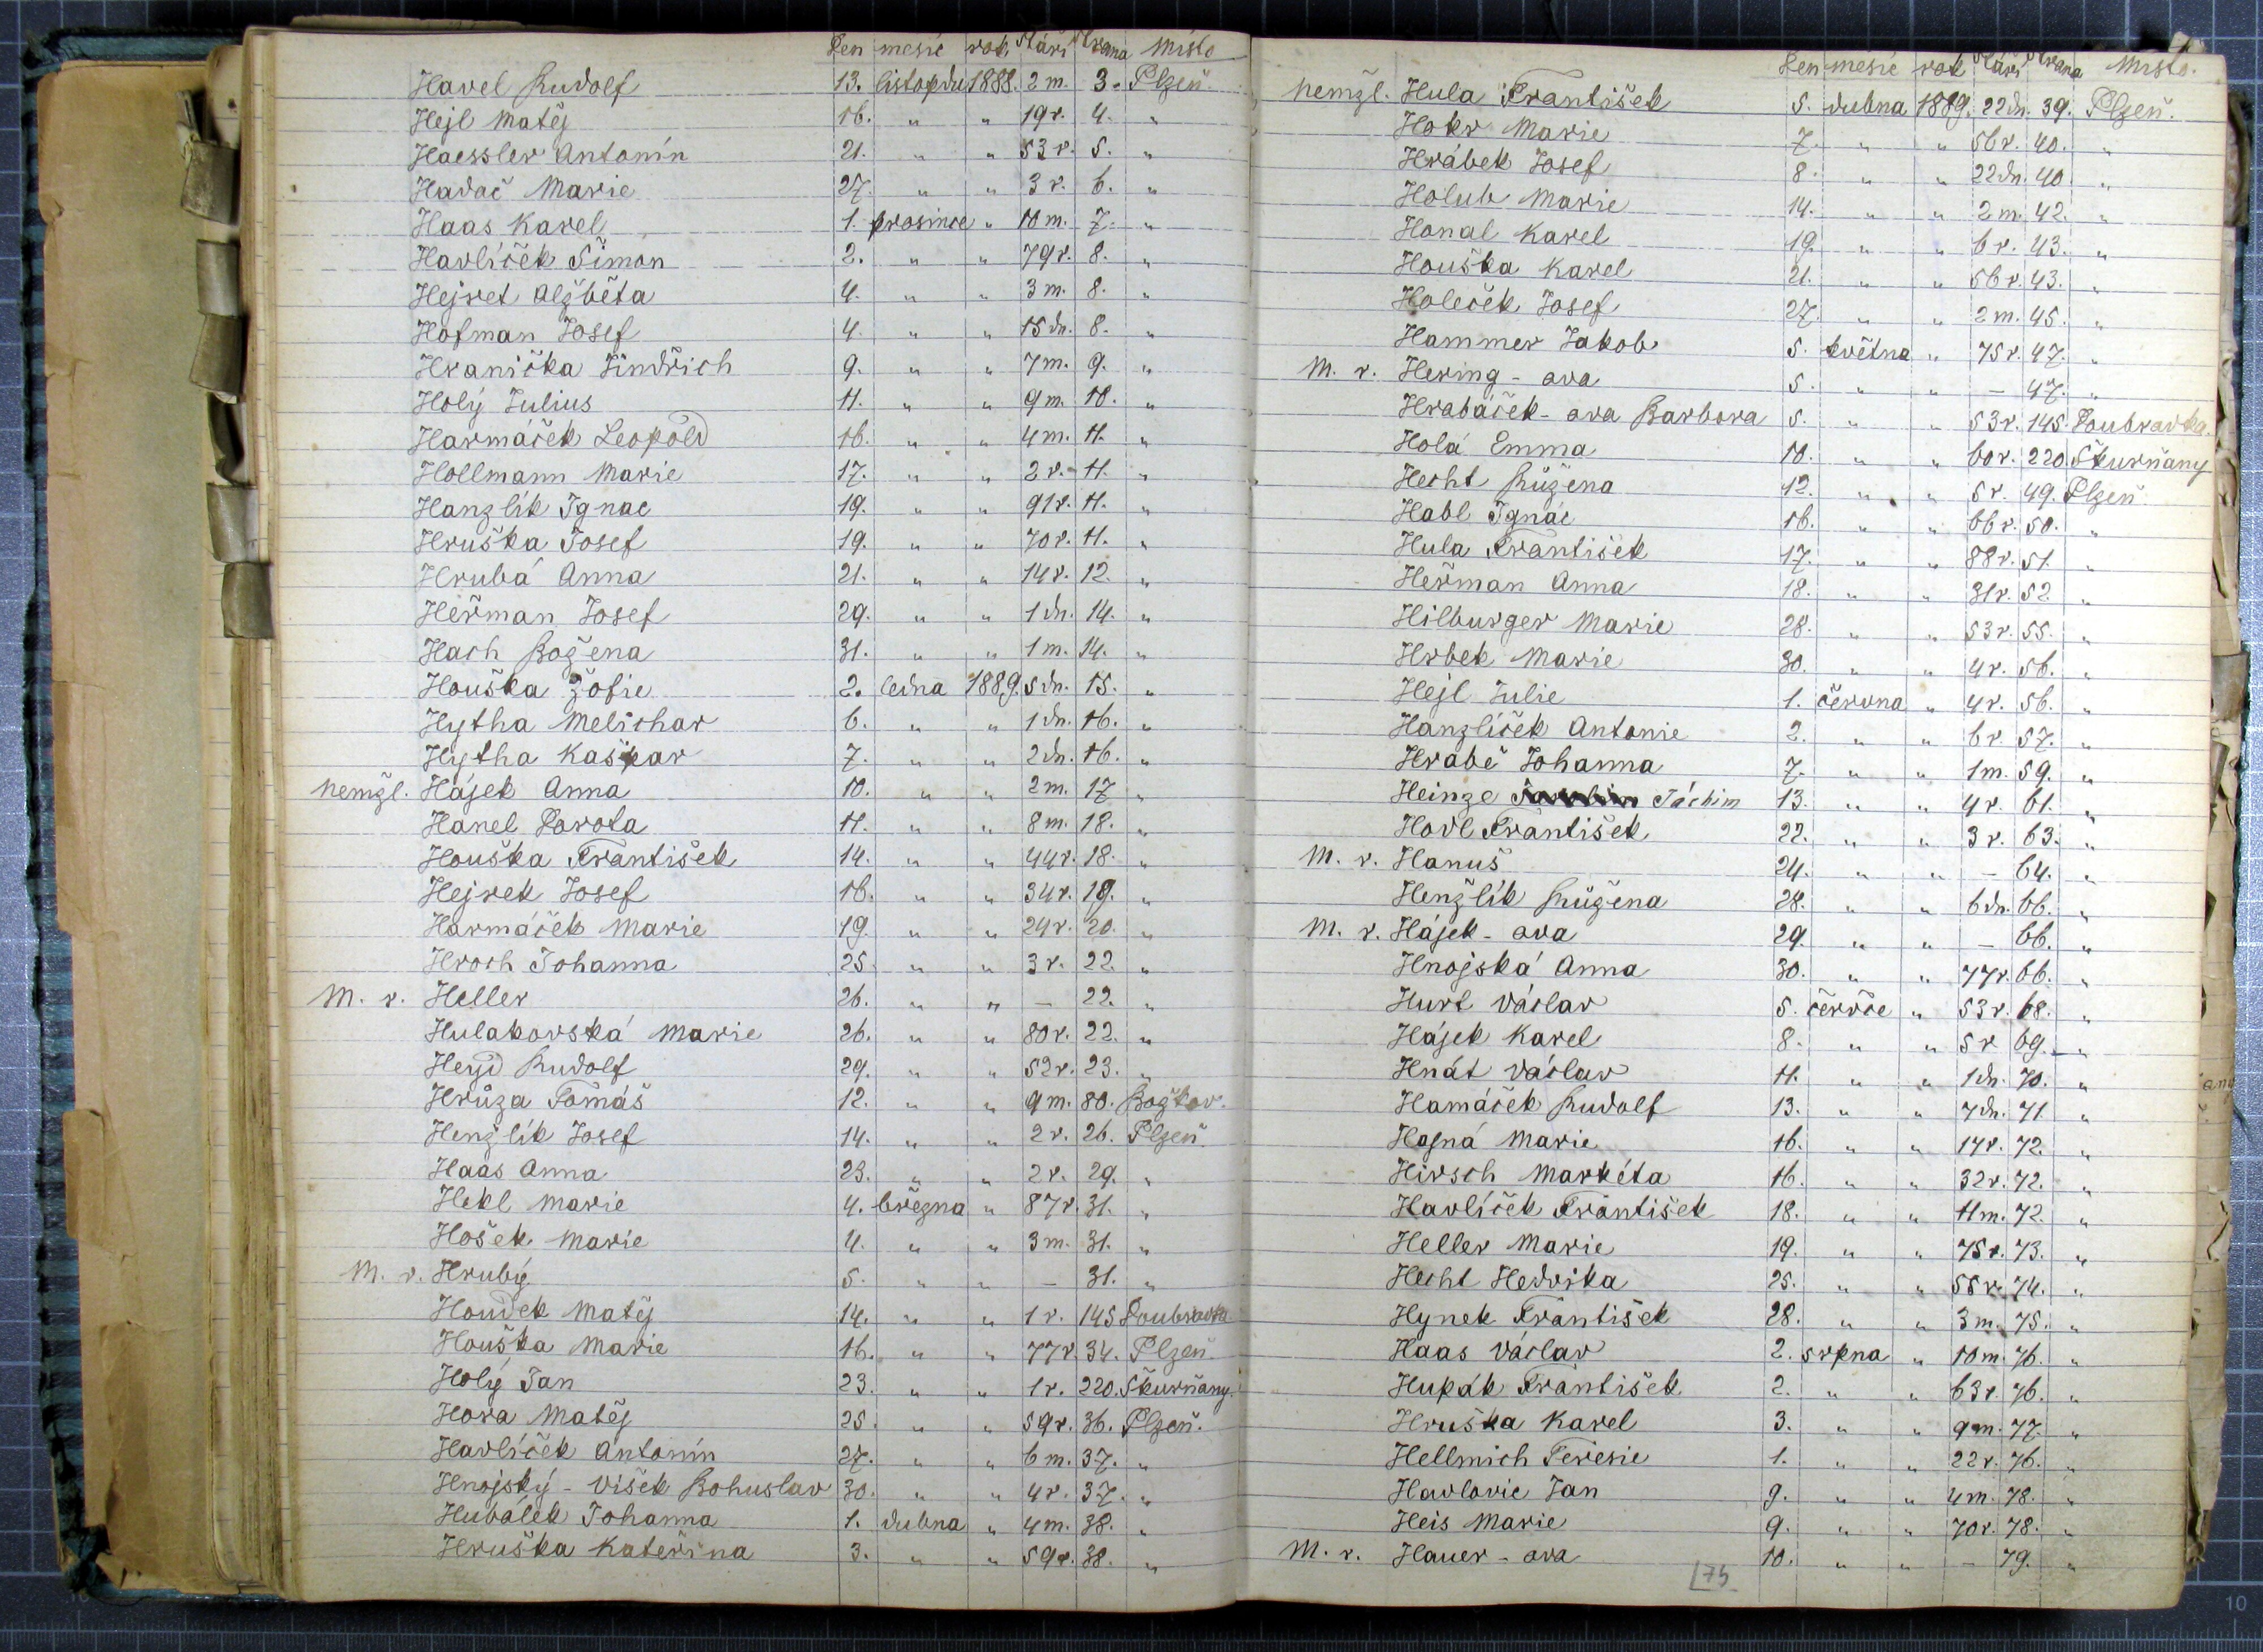 Den mesíc rok Stáří Strana Místo
Havel Rudolf 13. listopdu 1888. 2 m. 3. Plzeň.
Hejl Matěj 16. „ „ 19 r. 4. „
Haessler Antonín 21. „ „ 53 r. 5. „
Hadač Marie 27. „ „ 3 r. 6. „
Haas Karel 1. prosince „ 10 m. 7. „
Havlíček Šimon 2. „ „ 79 r. 8. „
Hejret Alžběta 4. „ „ 3 m. 8. „
Hofman Josef 4. „ „ 15 dn. 8. „
Hranička Jindřich 9. „ „ 7 m. 9. „
Holý Julius 11. „ „ 9 m. 10. „
Harmáček Leopold 16. „ „ 4 m. 11. „
Hollmann Marie 17. „ „ 2 r. 11. „
Hanzlík Ignac 19. „ „ 91 r. 11. „
Hruška Josef 19. „ „ 70 r. 11. „
Hrubá Anna 21. „ „ 14 r. 12. „
Heřman Josef 29. „ „ 1 dn. 14. „
Hach Božena 31. „ „ 1 m. 14. „
Houška Žofie 2. ledna 1889. 5 dn. 15. „
Hytha Melichar 6. „ „ 1 dn. 16. „
Hytha Kašpar 7. „ „ 2 dn. 16. „
nemžl. Hájek Anna 10. „ „ 2 m. 17 „
Hanel Dorota 11. „ „ 8 m. 18. „
Houška František 14. „ „ 44 r. 18. „
Hejrek Josef 16. „ „ 34 r. 19. „
Harmáček Marie 19. „ „ 24 r. 20. „
Hroch Johanna 25 „ „ 3 r. 22. „
M. r. Heller 26. „ „ — 22. „
Hulakovská Marie 26. „ „ 80 r. 22. „
Heyd Rudolf 29. „ „ 52 r. 23. „
Hrůza Tomáš 12. „ „ 9 m. 80. Božkov.
Henžlík Josef 14. „ „ 2 r. 26. Plzeň.
Haas Anna 23. „ „ 2 r. 29. „
Hekl Marie 4. března „ 87 r. 31. „
Hošek Marie 4. „ „ 3 m. 31. „
M. r. Hrubý 5. „ „ — 31. „
Houdek Matěj 14. „ „ 1 r. 145 Doubravka
Houška Marie 16. „ „ 77 r. 34. Plzeň.
Holý Jan 23. „ „ 1 r. 220. Škurňany.
Hora Matěj 25. „ „ 59 r. 36. Plzeň.
Havlíček Antonín 27. „ „ 6 m. 37. „
Hnojský - Višek Bohuslav 30. „ „ 4 r. 37. „
Hubálek Johanna 1. dubna „ 4 m. 38. „
Hruška Kateřina 3. „ „ 59 r. 38. „
Den mesíc rok Stáří Strana Místo.
nemžl. Hula František 5. dubna 1889. 22 dn. 39. Plzeň.
Hokr Marie 7. „ „ 56 r. 40. „
Hrábek Josef 8. „ „ 22 dn. 40 „
Holub Marie 14. „ „ 2 m. 42. „
Honal Karel 19. „ „ 6 r. 43. „
Houška Karel 21. „ „ 56 r. 43. „
Holeček Josef 27. „ „ 2 m. 45. „
Hammer Jakob 5. května „ 75 r. 47. „
M. r. Hering - ova 5. „ „ — 47. „
Hrabáček - ova Barbora 5. „ „ 53 r. 145. Doubravka.
Holá Emma 10. „ „ 60 r. 220 Škurňany
Hecht Růžena 12. „ „ 5 r. 49. Plzeň
Habl Ignác 16. „ „ 66 r. 50. „
Hula František 17. „ „ 88 r. 51. „
Heřman Anna 18. „ „ 31 r. 52 „
Hilburger Marie 28. „ „ 53 r. 55. „
Hrbek Marie 30. „ „ 4 r. 56. „
Hejl Julie 1. června „ 4 r. 56. „
Hanzlíček Antonie 2. „ „ 6 r. 57. „
Hrabě Johanna 7. „ „ 1 m. 59. „
Heinze Jáchim 13. „ „ 4 r. 61. „
Hovl František 22. „ „ 3 r. 63. „
M. r. Hanuš 24. „ „ — 64. „
Henžlík Růžena 28. „ „ 6 dn. 66. „
M. r. Hájek - ova 29. „ „ — 66. „
Hnojská Anna 30. „ „ 77 r. 66. „
Hurt Václav 5. červce „ 53 r. 68. „
Hájek Karel 8. „ „ 5 r 69. „
Hnát Václav 11. „ „ 1 dn. 70. „
Hamáček Rudolf 13. „ „ 7 dn. 71. „
Hojná Marie 16. „ „ 17 r. 72. „
Hirsch Markéta 16. „ „ 32 r. 72. „
Havlíček František 18. „ „ 11 m. 72. „
Heller Marie 19. „ „ 75 r. 73. „
Hecht Hedvika 25. „ „ 55 r. 74. „
Hynek František 28. „ „ 3 m. 75. „
Haas Václav 2. srpna „ 10 m. 76. „
Hupák František 2. „ „ 63 r. 76. „
Hruška Karel 3. „ „ 9 m. 77. „
Hellmich Teresie 1. „ „ 22 r. 76. „
Havlovic Jan 9. „ „ 4 m. 78. „
Heis Marie 9. „ „ 70 r. 78. „
M. r. Hauer - ova 10. „ „ — 79. „
75
10